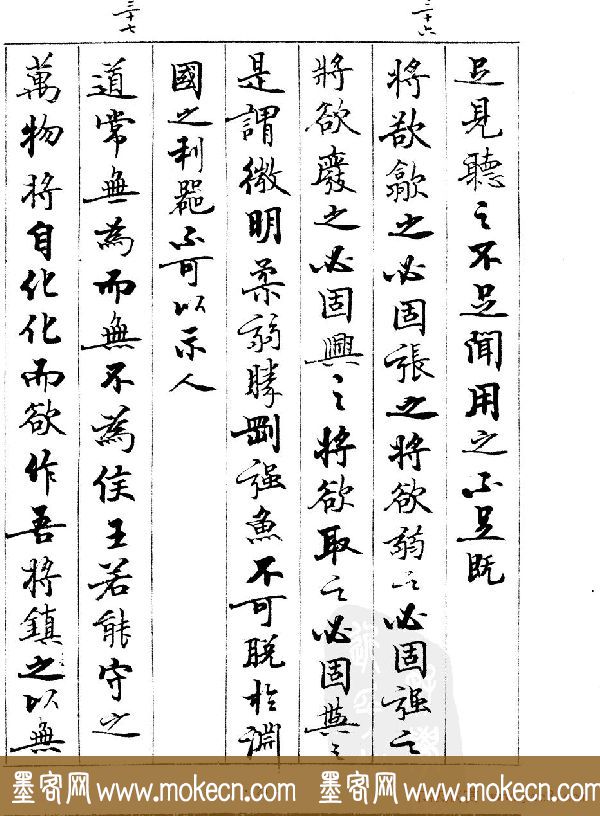 三十六
三十七
足見聽之不足聞用之不足既
將欲歙之必固張之將欲弱之必固強之
將欲廢之必固興之將欲取之必固與之
是謂微明柔弱勝剛强魚不可脫於淵
國之利器不可以示人
道常無為而無不為侯王若能守之
萬物將自化化而欲作吾將鎮之以無
墨客网 www.mokecn.com 墨客网 www.mokecn.com